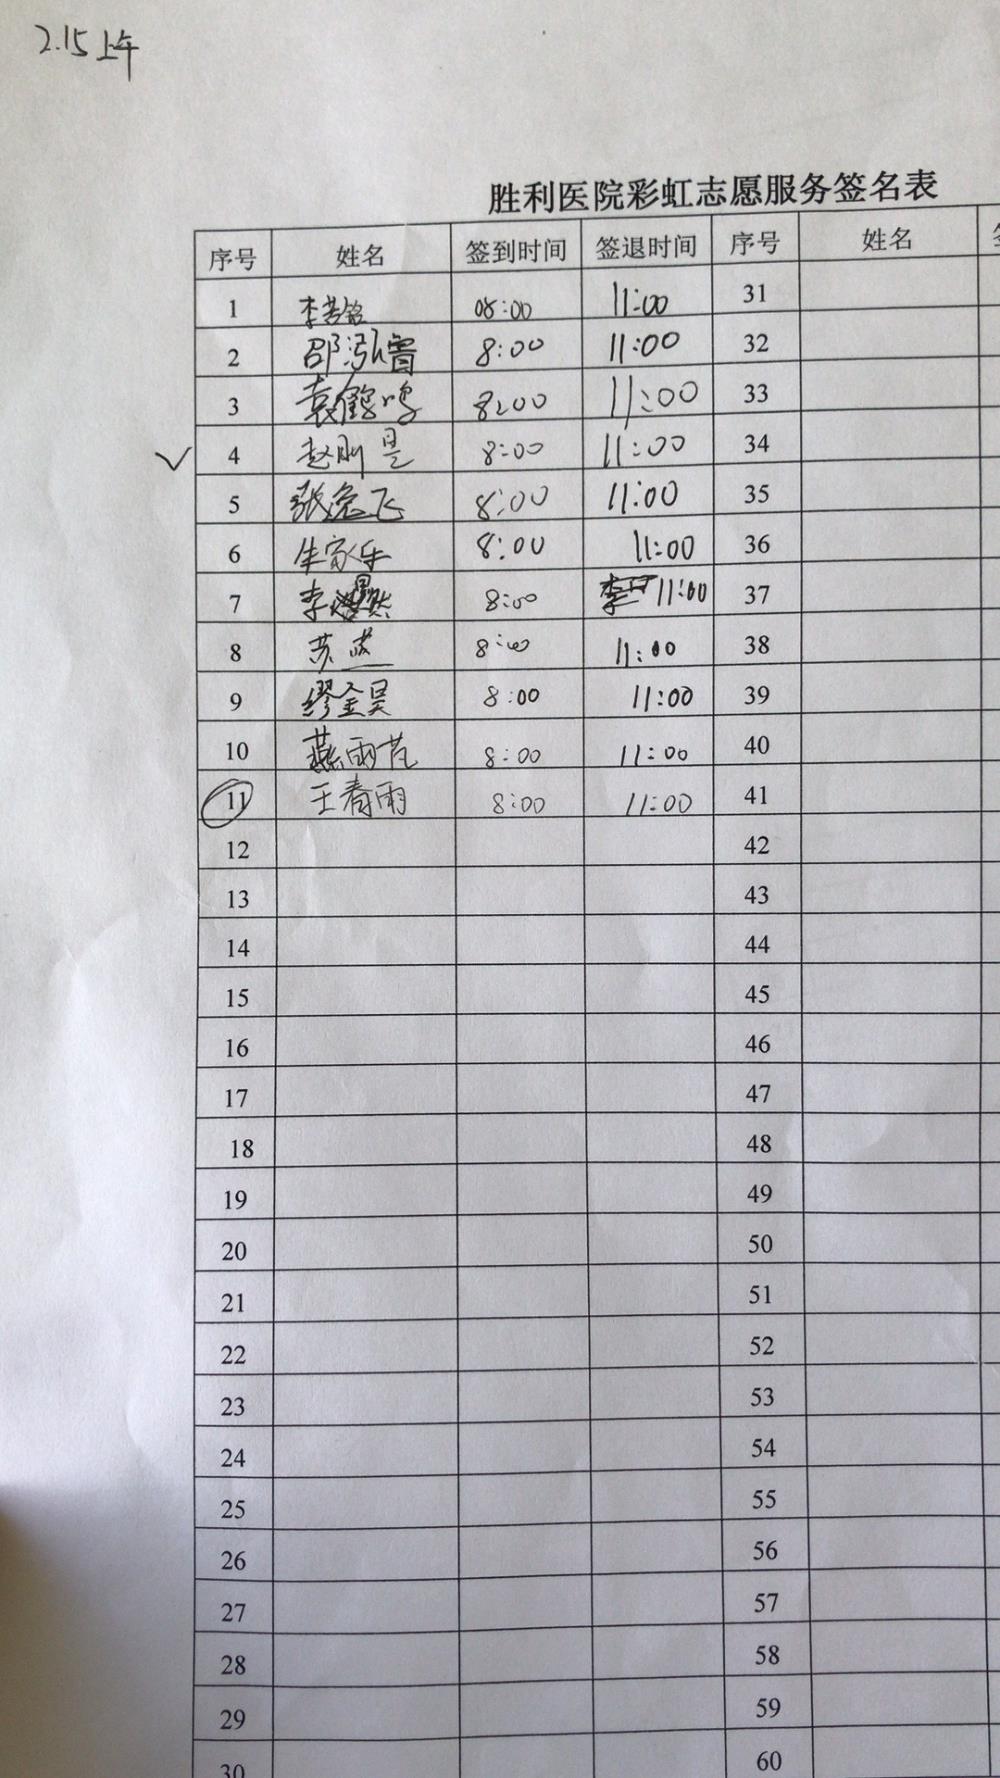 2.15上午
胜利医院彩虹志愿服务签名表
序号 姓名 签到时间 签退时间 序号 姓名
1 李若铭 08:00 11:00 31
2 邵泓睿 8:00 11:00 32
3 袁鹤鸣 8:00 11:00 33
4 赵刚昱 8:00 11:00 34
5 张逸飞 8:00 11:00 35
6 朱家乐 8:00 11:00 36
7 李 8:00 11:00 37
8 苏 8:00 11:00 38
9 缪金昊 8:00 11:00 39
10 燕雨 8:00 11:00 40
11 王春雨 8:00 11:00 41
12 42
13 43
14 44
15 45
16 46
17 47
18 48
19 49
20 50
21 51
22 52
23 53
24 54
25 55
26 56
27 57
28 58
29 59
30 60